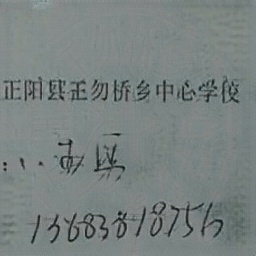 正阳县王勿桥乡中心学校
13683818756